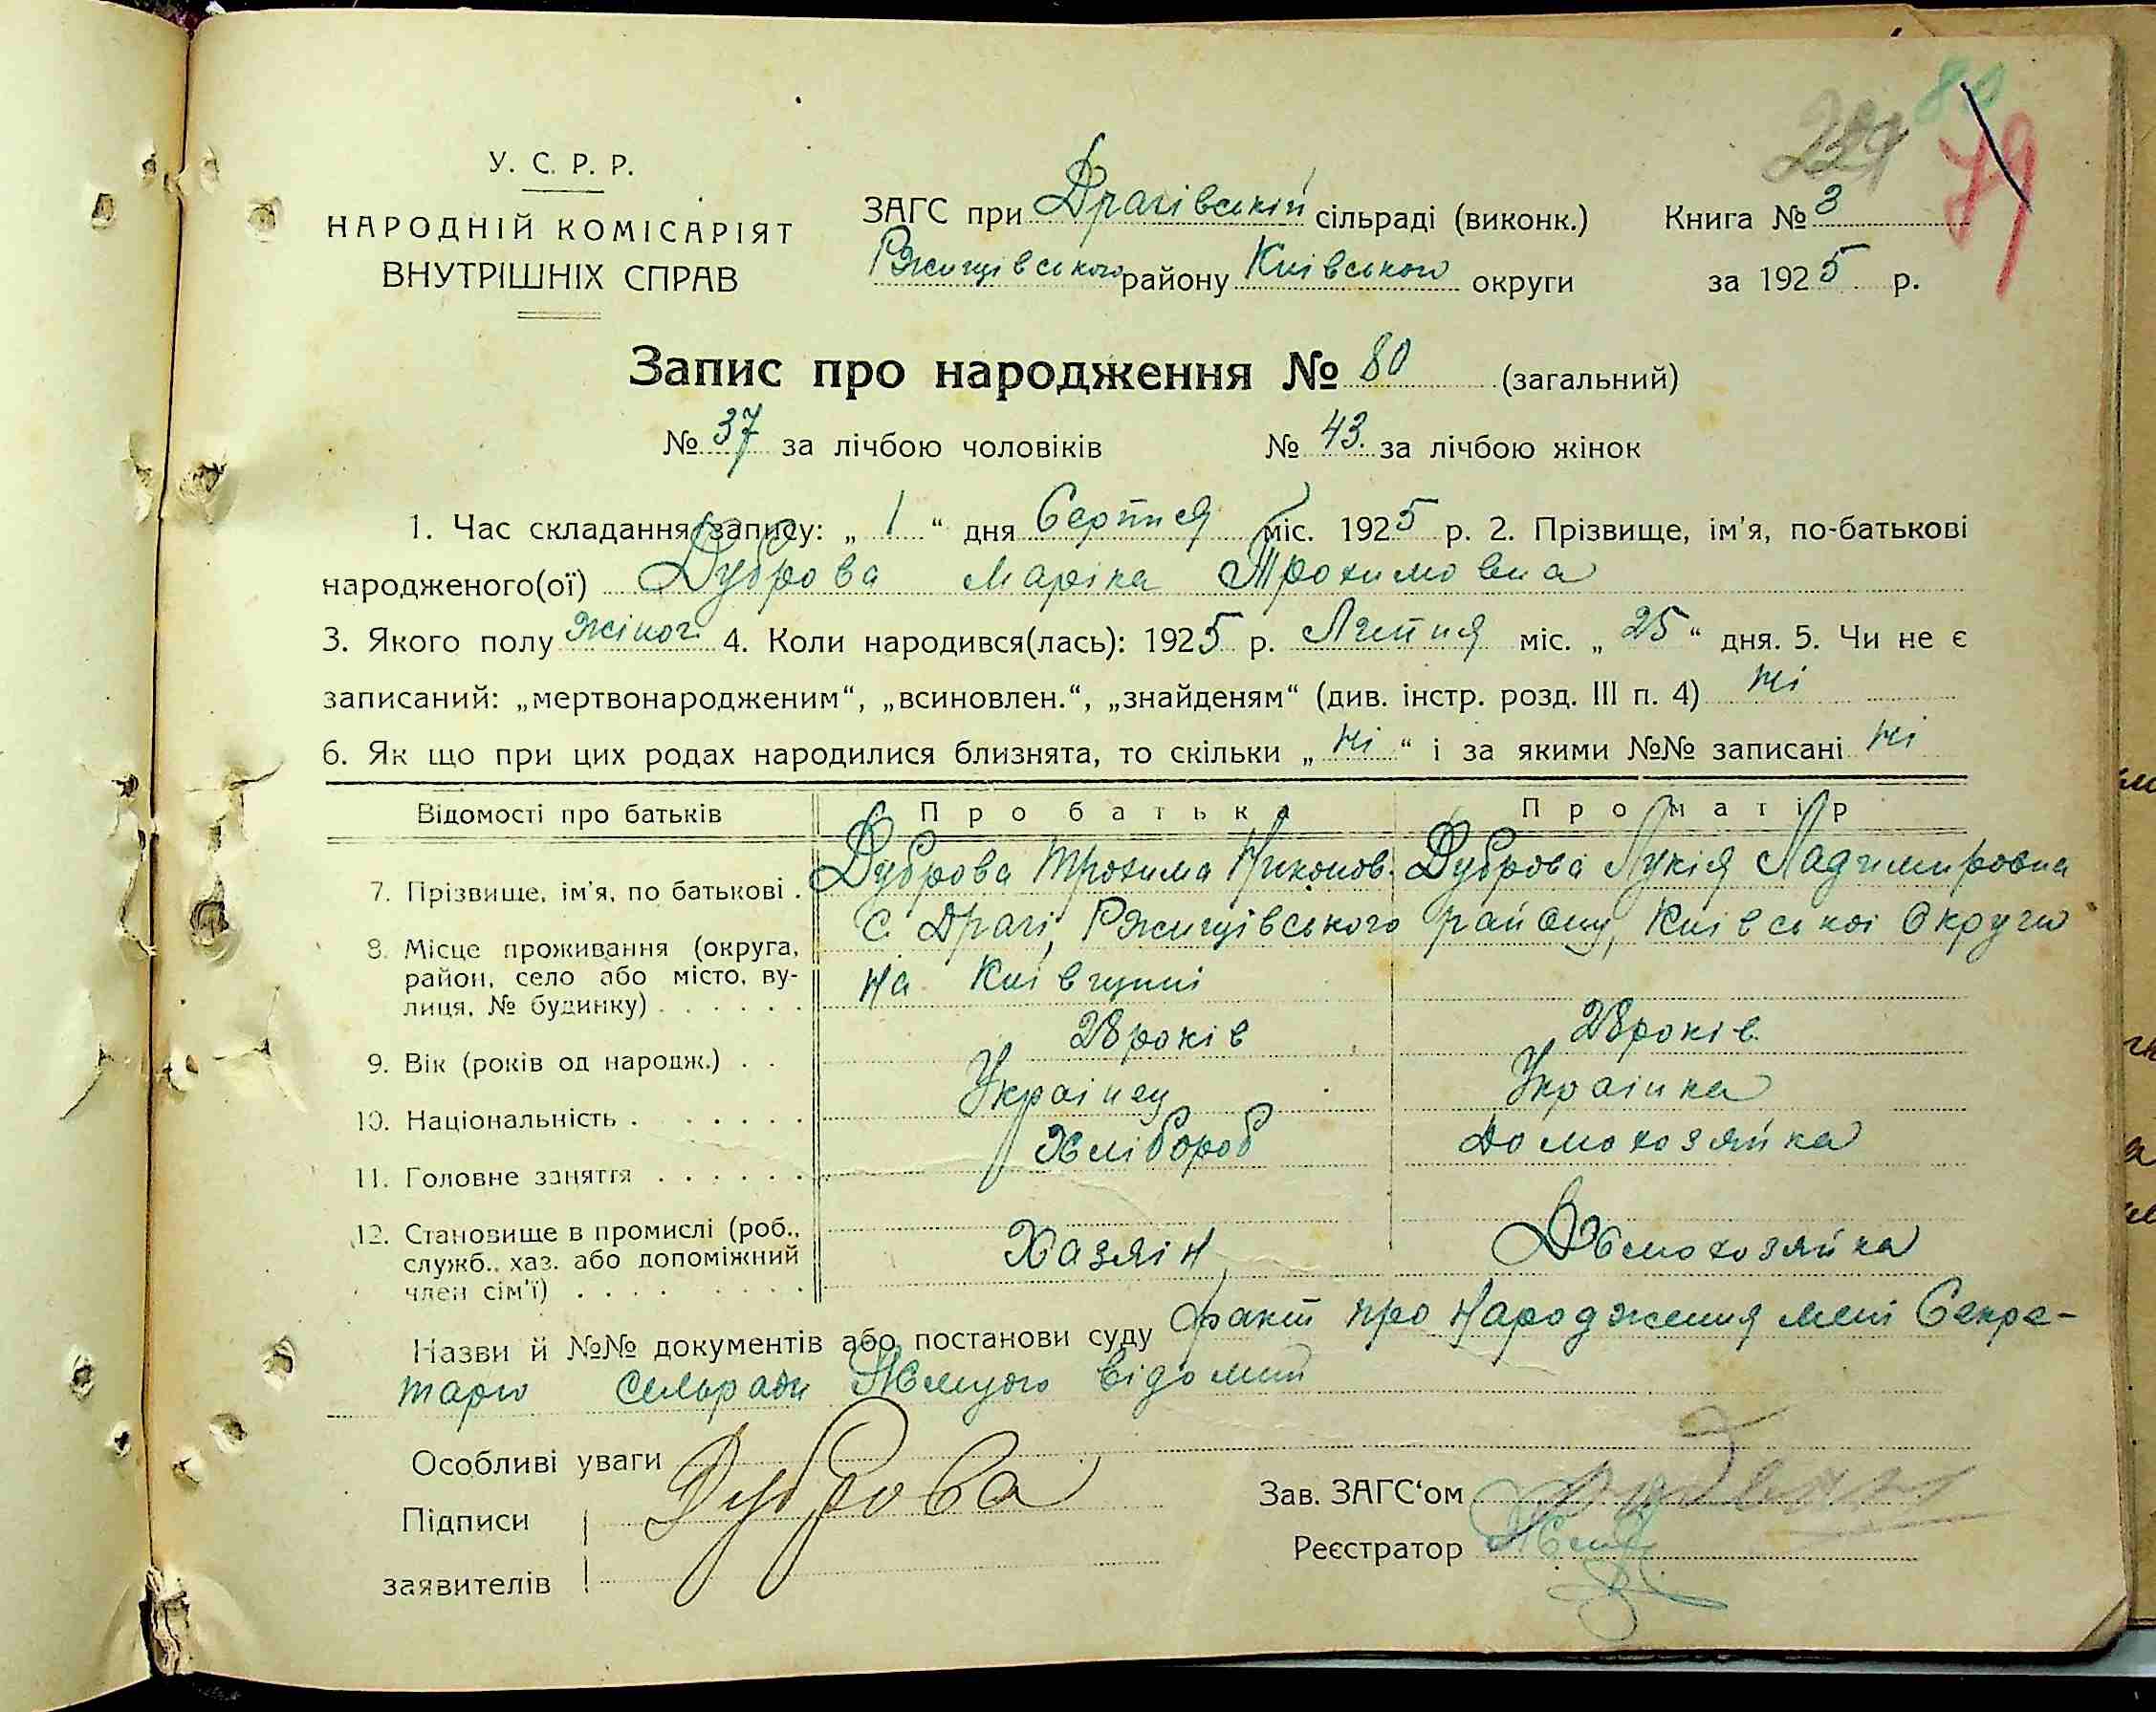 80
79
У. С. Р. Р.
НАРОДНІЙ КОМІСАРІЯТ
ВНУТРІШНІХ СПРАВ
ЗАГС при Драгівській сільраді (виконк.) Книга № 3
Ржищівського району Київського округи за 1925 р.
Запис про народження № 80 (загальний)
№ 37 за лічбою чоловіків № 43. за лічбою жінок
1. Час складання запису: „ 1 “ дня Серпня міс. 1925 р. 2. Прізвище, ім’я, по-батькові
народженого(ої) Дуброва Маріка Трохимовна
3. Якого полу жіноч. 4. Коли народився(лась): 1925 р. Липня міс. „ 25 “ дня. 5. Чи не є
записаний: „мертвонародженим“, „всиновлен.“, „знайденям“ (див. інстр. розд. III п. 4) ні
6. Як що при цих родах народилися близнята, то скільки „ ні “ і за якими №№ записані ні
Відомості про батьків Про батька Про матір
7. Прізвище, ім’я, по батькові . Дуброва Трохима Никонов. Дуброва Лукія Ладимировна
8. Місце проживання (округа, С. Драгі, Ржищівського району, Київської Округи
район, село або місто, ву-
лиця, № будинку) . . . . . . на Київщині
9. Вік (років од народж.) . . 28 років 28 років
10. Національність . . . . . . . Українец Українка
11. Головне заняття . . . . . . . Хлібороб Домохозяйка
12. Становище в промислі (роб.,
служб., хаз. або допоміжний Хазяін Домохозяйка
член сім’ї) . . . . . . . .
Назви й №№ документів або постанови суду факт про народження мені Секре-
тарю Сельради відомий
Особливі уваги
Підписи Дуброва Зав. ЗАГС‘ом
заявителів Реєстратор